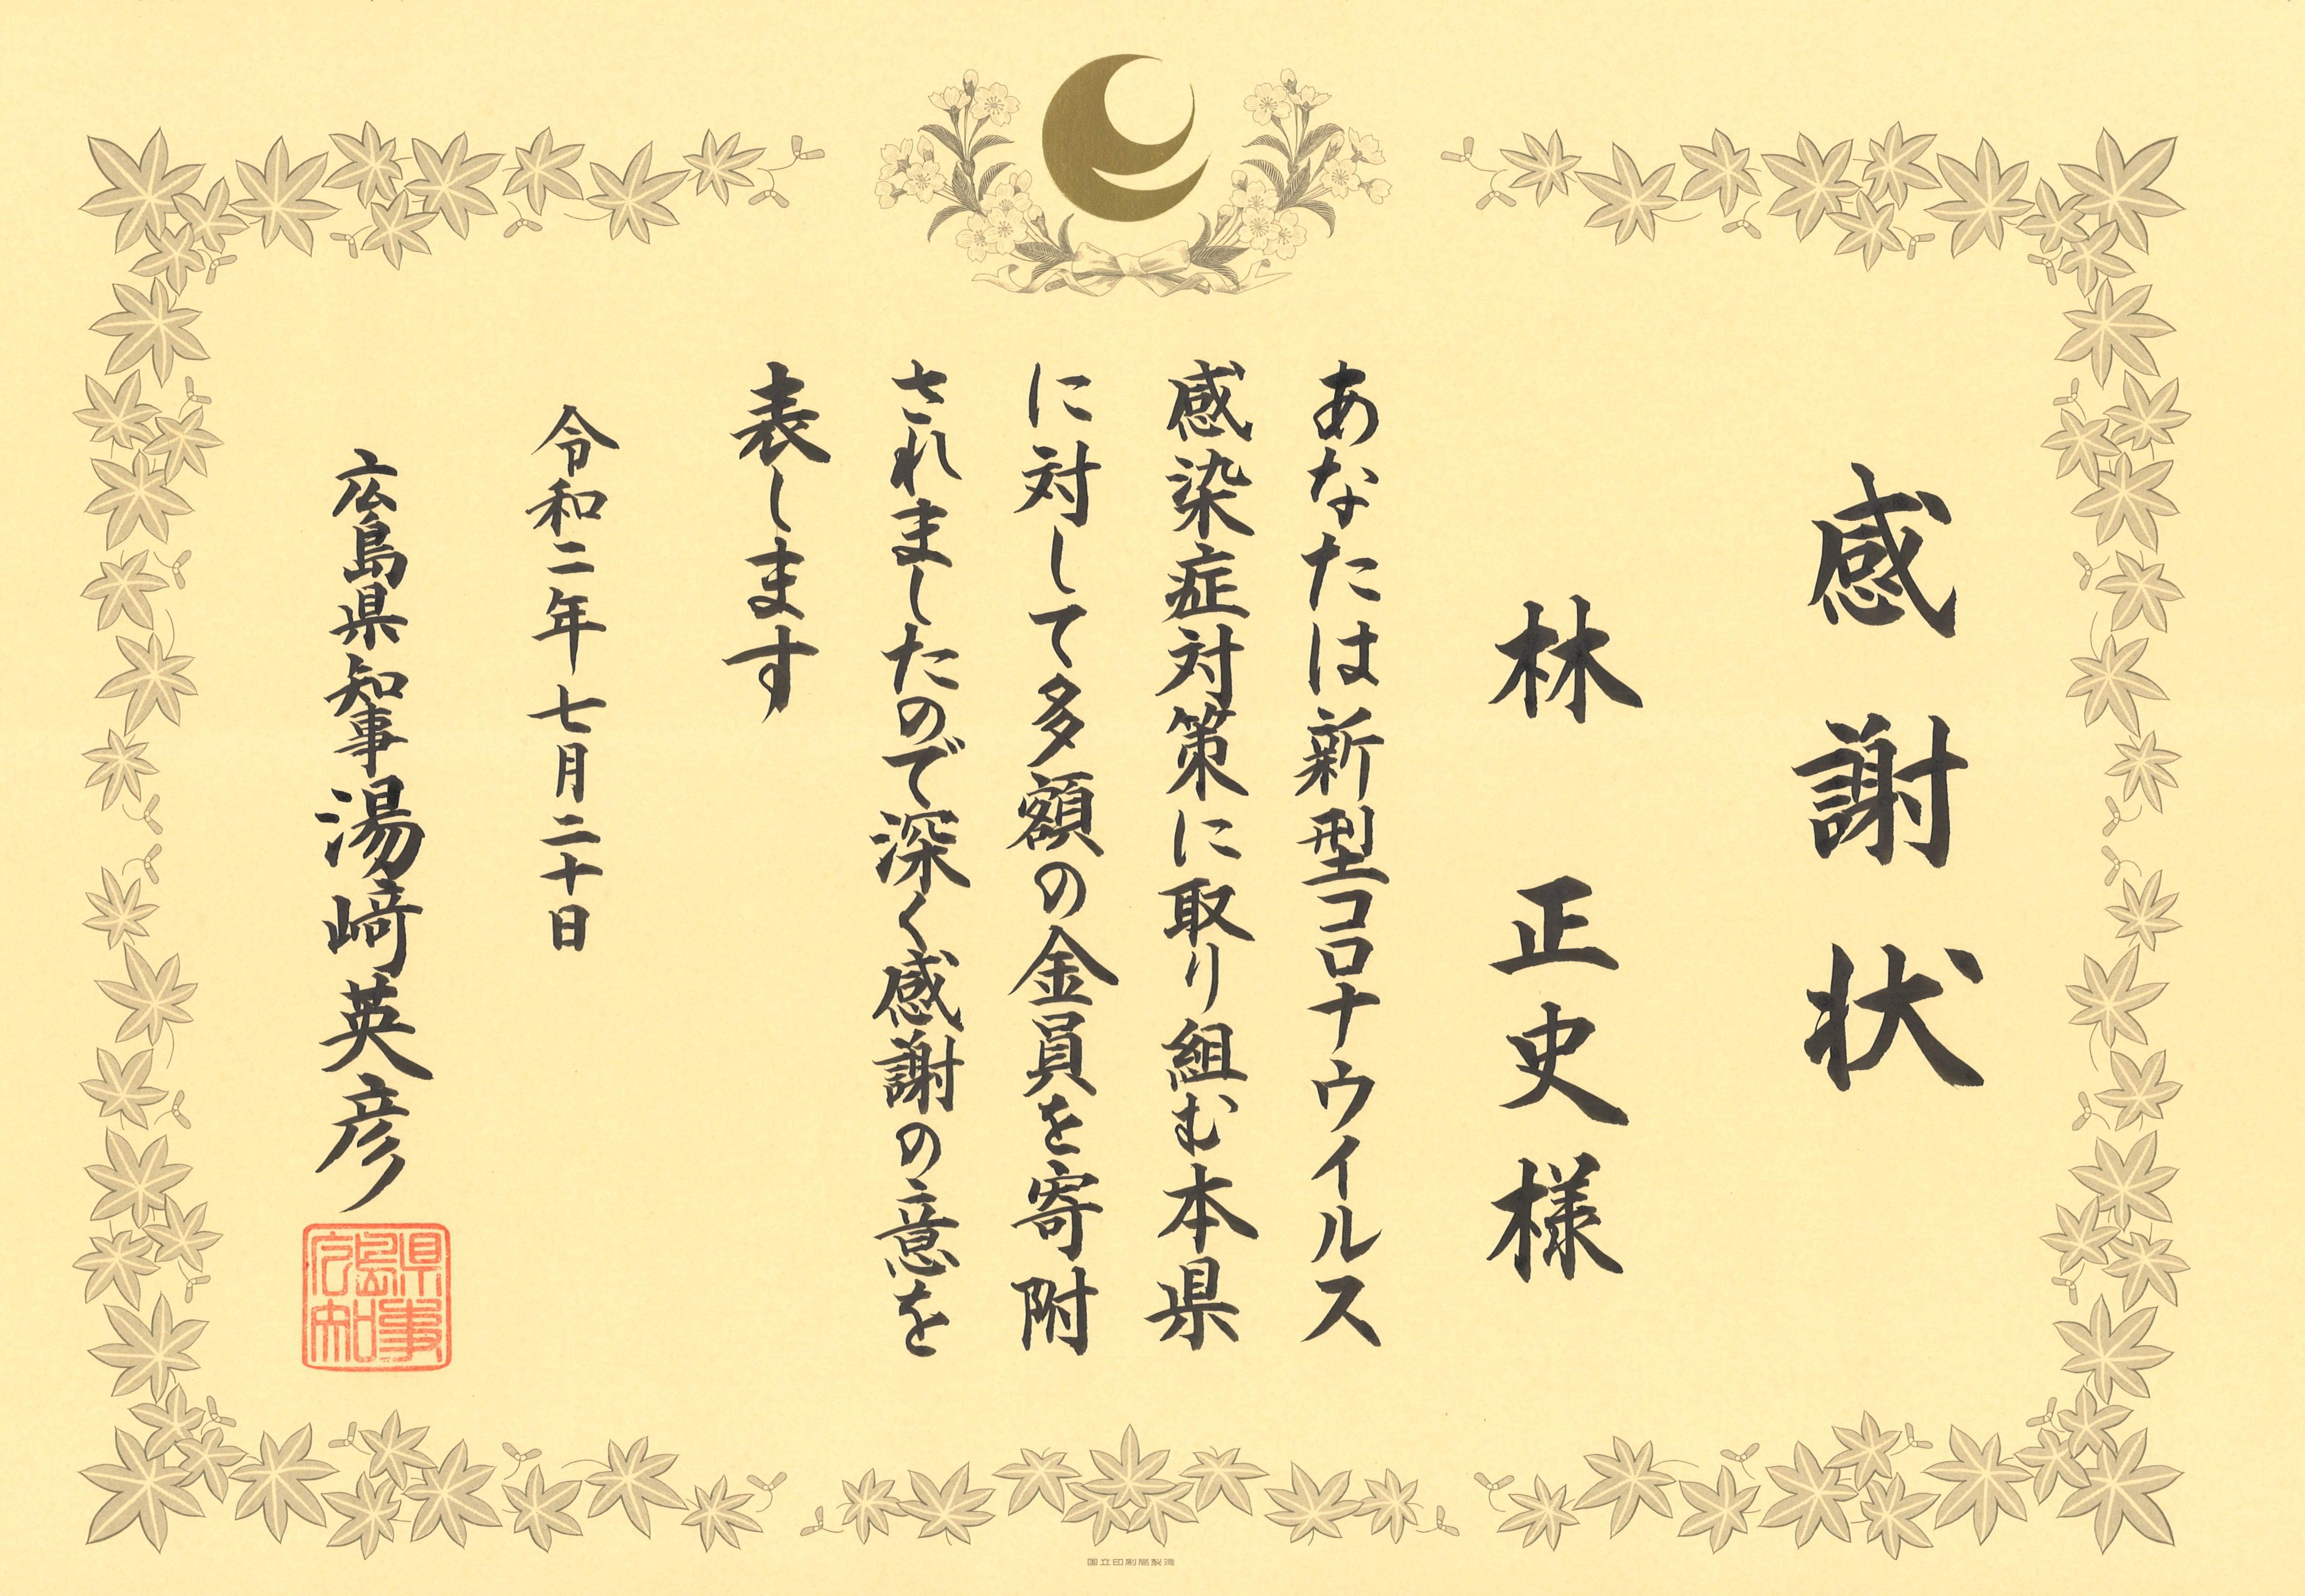 感謝状
林 正史様
あなたは新型コロナウイルス
感染症対策に取り組む本県
に対して多額の金員を寄附
されましたので深く感謝の意を
表します
令和二年七月二十日
広島県知事湯﨑英彦
広島県知事
国立印刷局製造